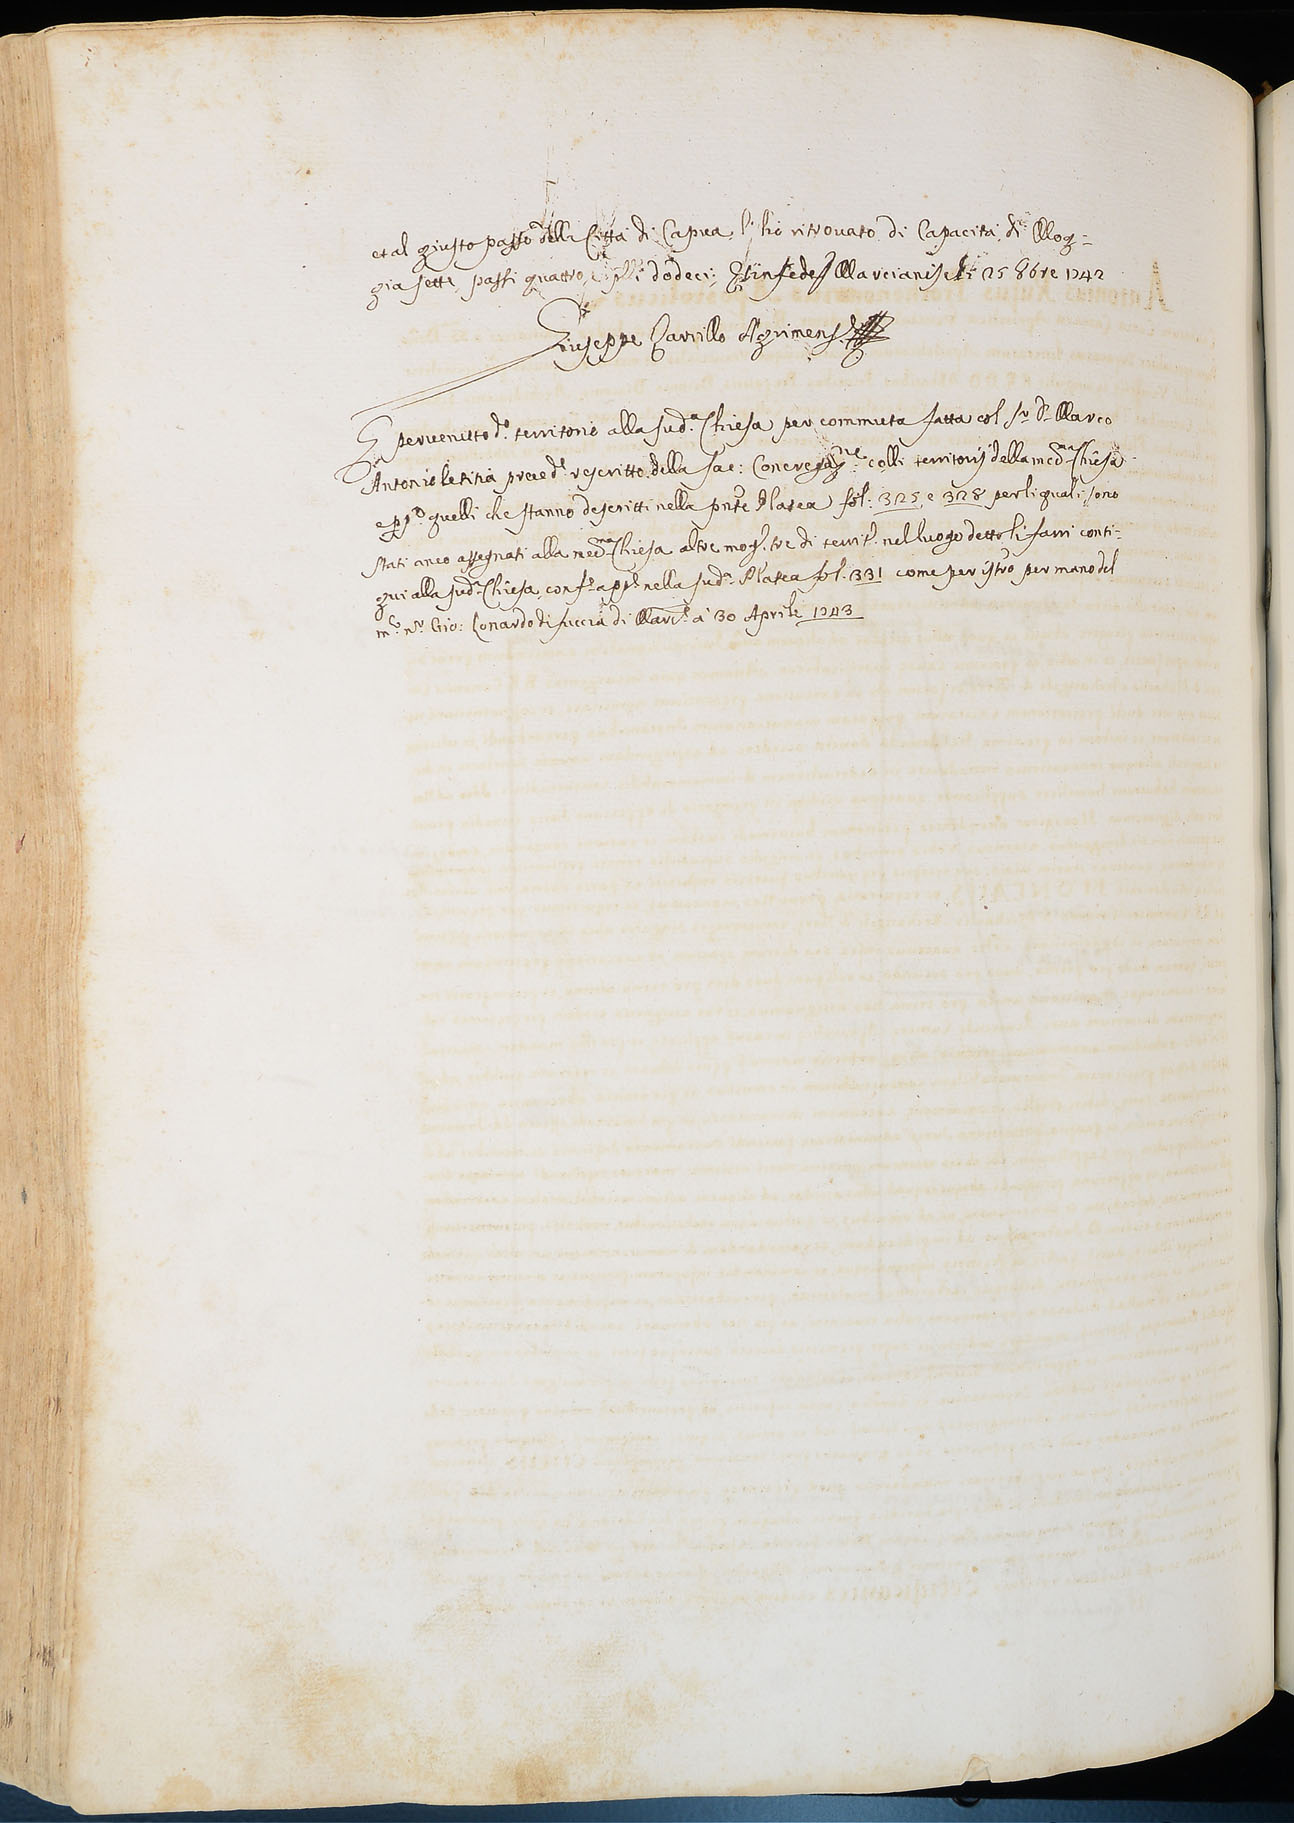 et al giusto passo della Città di Capua, l'hò ritrouato di Capacità di Mog=
gia sette, passi quattro, e dodeci; Et in fede Marcianise li 25 8bre 1742
Giuseppe Carrillo Agrimens.
E peruenutto d.o territorio alla sud.a Chiesa per commuta fatta col Sr. D. Marco
Antonio letitia preced.e rescritto della Sac: Congregaz.ne colli territorij della med.ma Chiesa
e quelli che stanno descritti nella pnte Platea fol: 325 e 328 per li quali sono
stati anco assegnati alla med.ma Chiesa altre mog. tre di territ.o nel luogo detto li farri conti=
gui alla sud.a Chiesa, conf.e app.e nella sud.a Platea fol: 331 come per istro per mano del
m.co nr. Gio: Lonardo di fuccia di Marc.e a 30 Aprile 1743